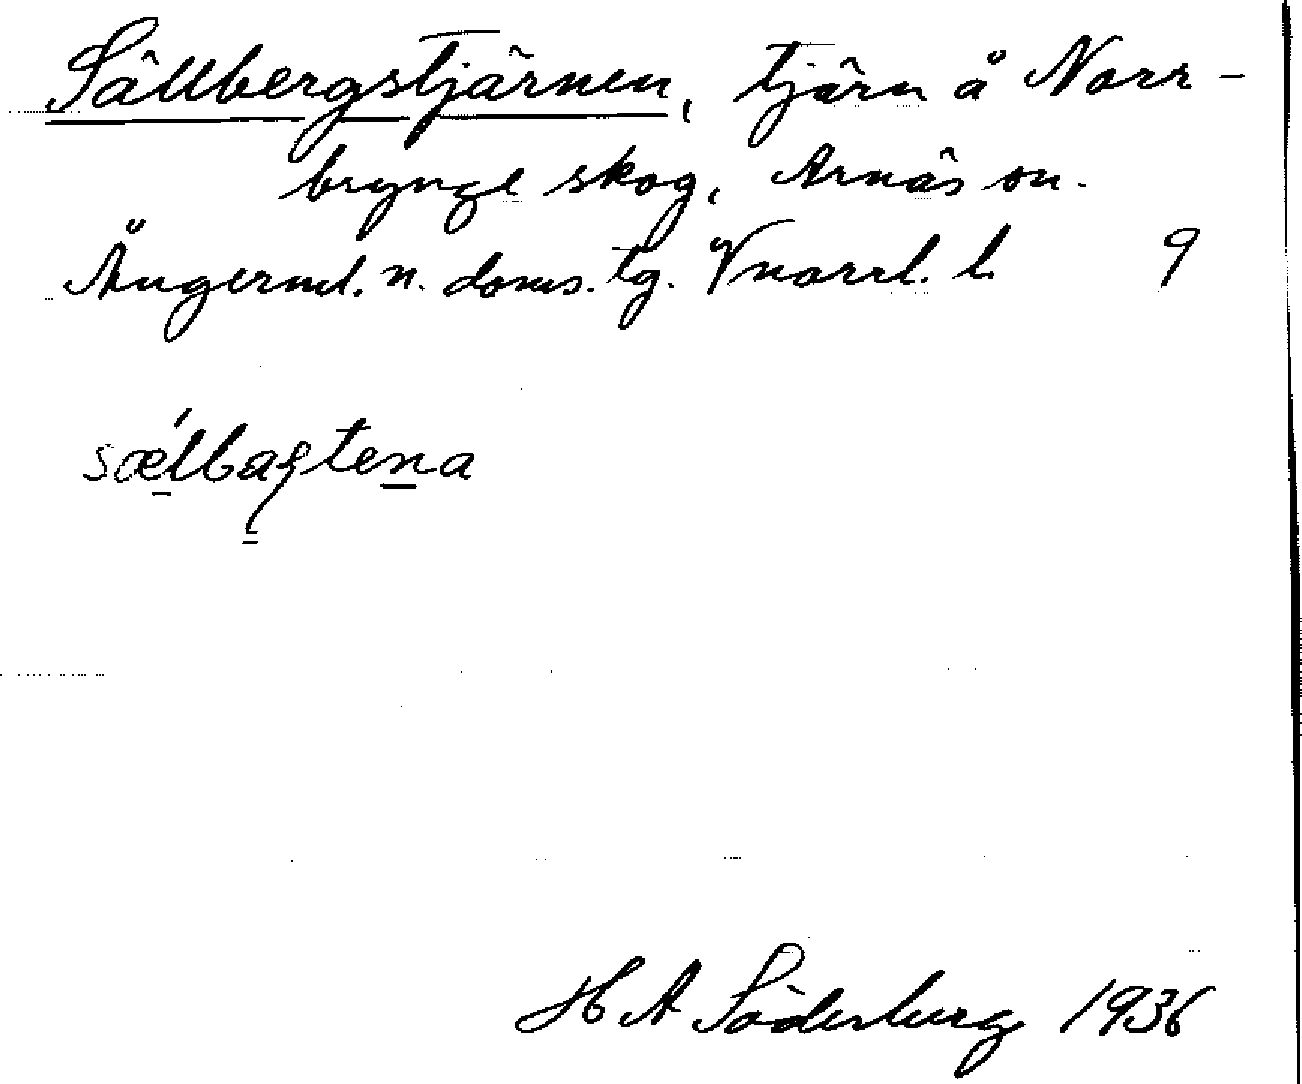 Sällbergstjärnen, tjärn å Norr-
brynge skog, Arnäs sn.
Ångerml. n. doms. tg. Vnorrl. l. 9
sælbaſtena
H A Söderberg 1936